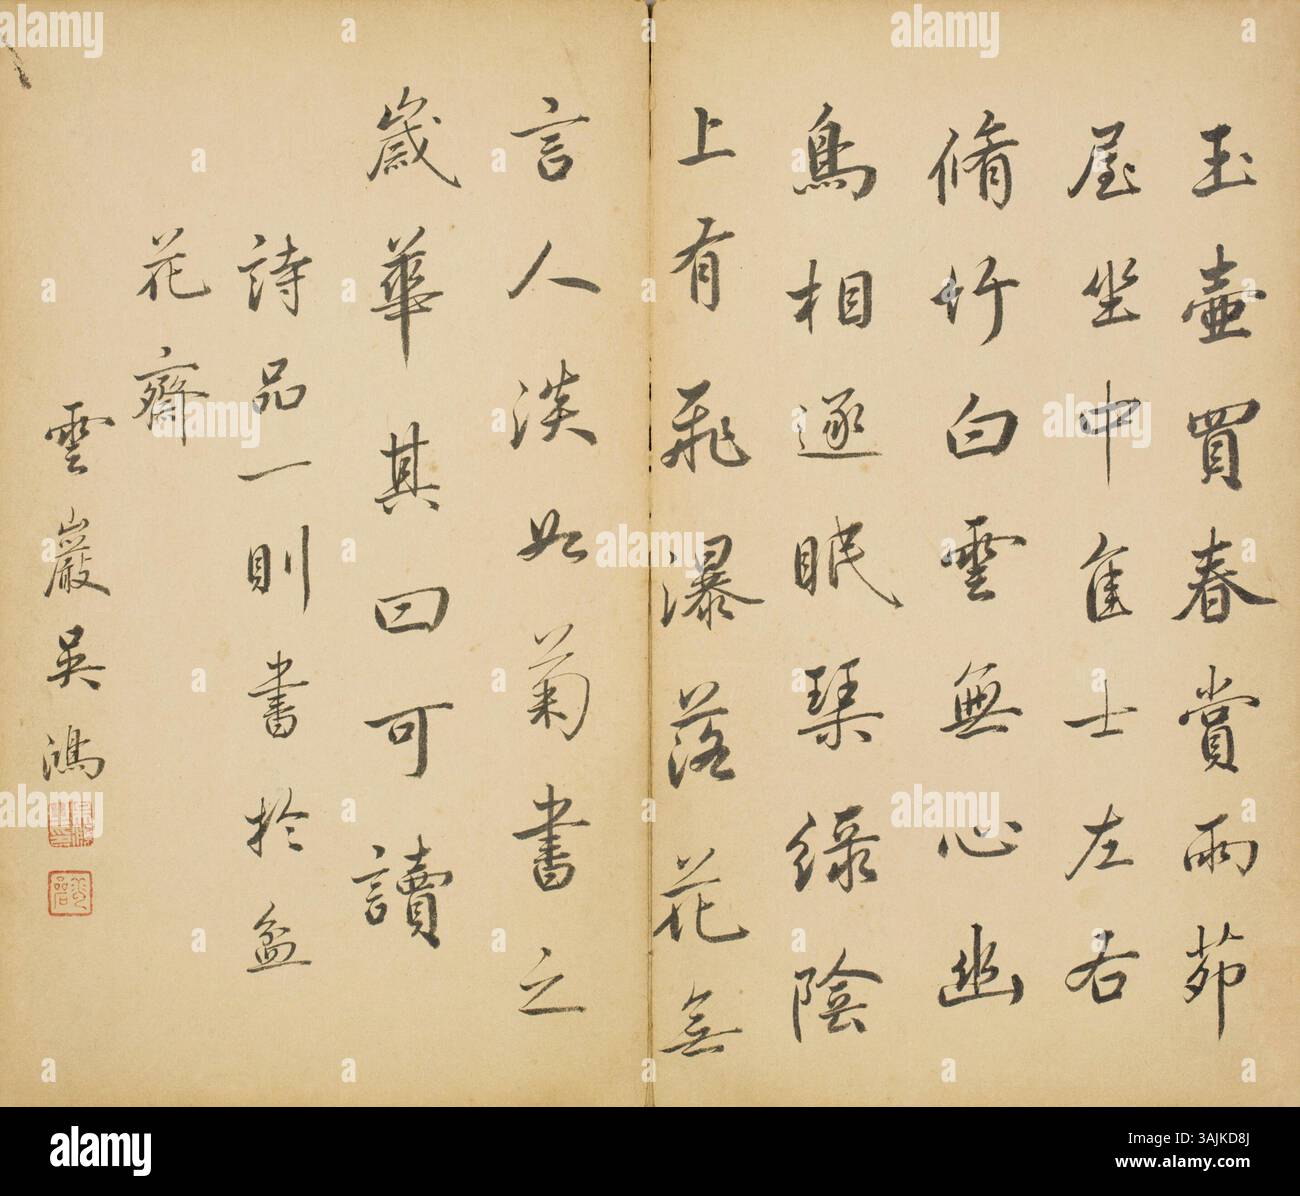 玉壺買春賞雨茆
屋坐中隹士左右
脩竹白雲無心幽
鳥相逐眠琹綠陰
上有飛瀑落花無
言人淡如菊書之
歲華其曰可讀
詩品一則書於盆
花齋
雲巖吳鴻
alamy
Image ID: 3AJKD8J
www.alamy.com